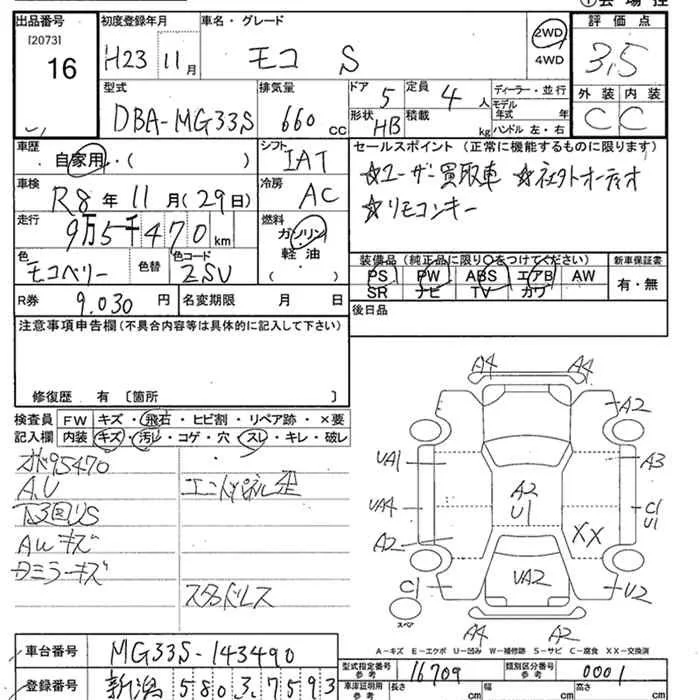 ①会場控
出品番号
[2073]
16
初度登録年月
H23 11月
車名・グレード
モコ S
2WD
4WD
評価点
3.5
外装 内装
C C
型式
DBA-MG33S
排気量
660 cc
ドア 5
形状 HB
定員 4 人
積載 kg
ディーラー・並行
モデル年式 年
ハンドル 左・右
車歴
自家用・( )
シフト
IAT
車検
R8年11月(29日)
冷房
AC
走行
9万5千470km
燃料
ガソリン
軽油
( )
色
モコベリー
色替
色コード
ZSU
R券 9.030円
名変期限 月 日
セールスポイント (正常に機能するものに限ります)
☆ユーザー買取車 ☆社外オーディオ
☆リモコンキー
装備品 (純正品に限り○をつけてください)
PS PW ABS エアB AW
SR ナビ TV カワ
新車保証書
有・無
後日品
注意事項申告欄(不具合内容等は具体的に記入して下さい)
修復歴 有 〔箇所 〕
検査員 FW キズ・飛石・ヒビ割・リペア跡・×要
記入欄 内装 キズ・汚レ・コゲ・穴・スレ・キレ・破レ
95470
A.U
下回りS
AWキズ
ミラーキズ
スタッドレス
A4 A4
A2
UA1 A3
UA4 A2 U1 C1 U1
A2 XX
C1 UA2 U2
スペア
A4 A2
A-キズ E-エクボ U-凹み W-補修跡 S-サビ C-腐食 XX-交換済
車台番号 MG33S-143490
登録番号 新潟 580 3 7593
型式指定番号 参考 16709
類別区分番号 参考 0001
車庫証明用 参考 長さ 幅 高さ